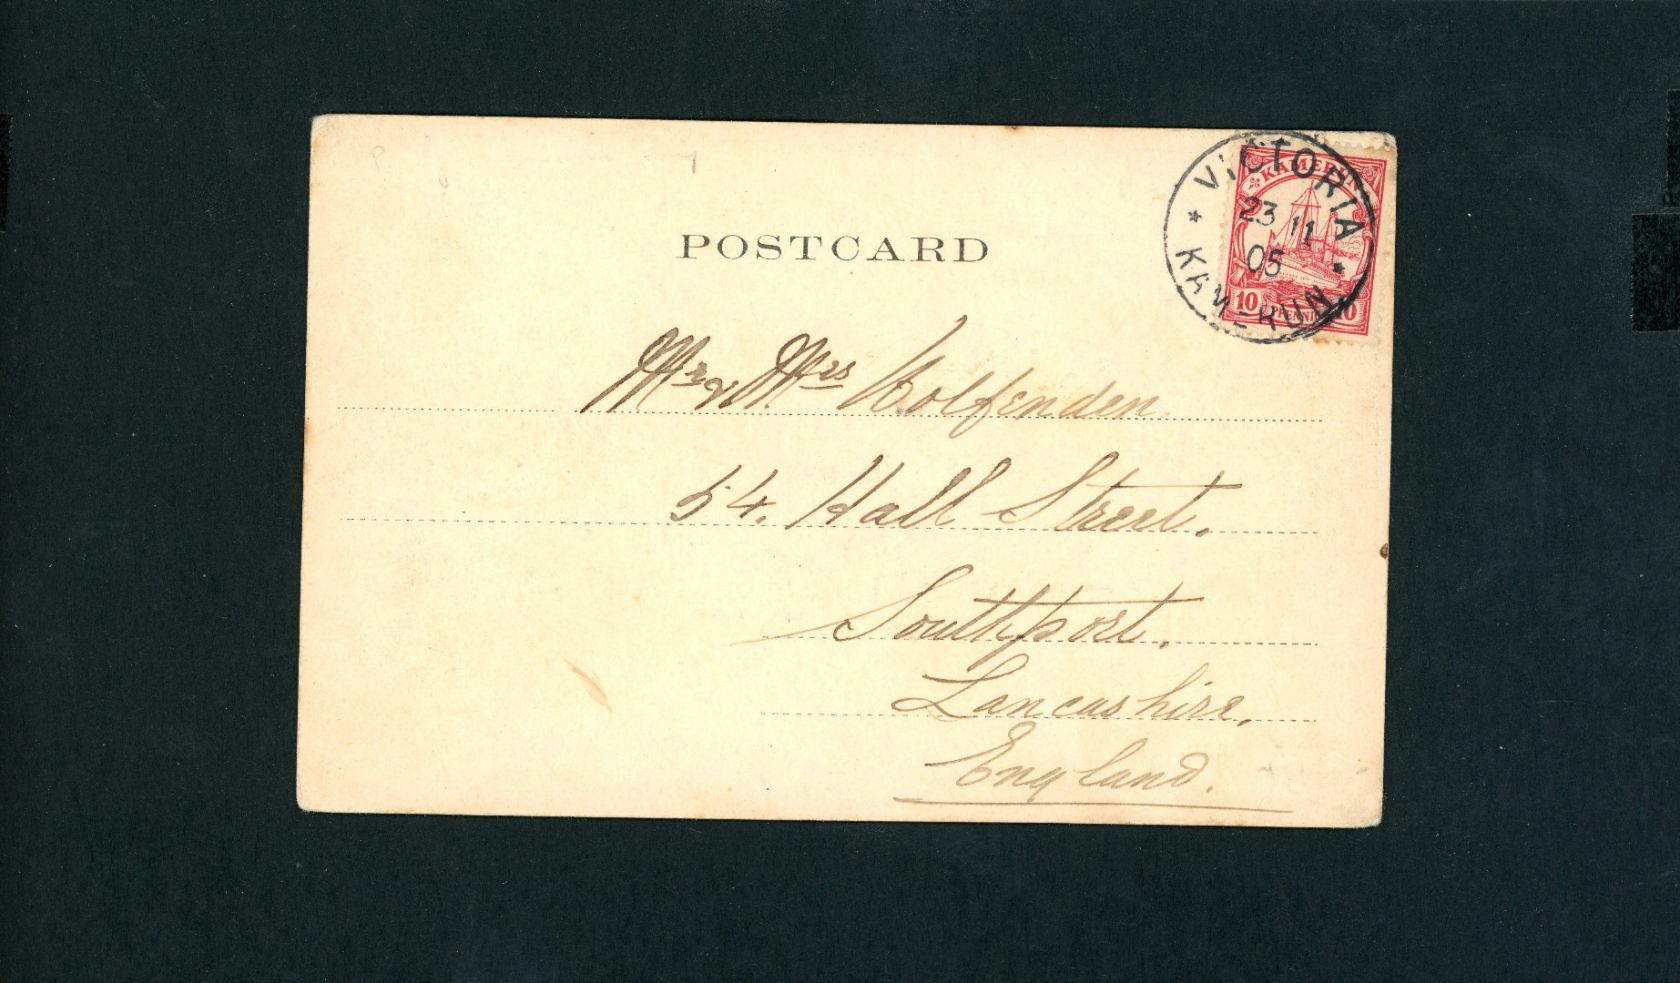 POSTCARD
VICTORIA
23 11
05
KAMERUN
KAMERUN
10 PFENNIG 10
Mr & Mrs Wolfenden
54. Hall Street.
Southport.
Lancashire.
England.